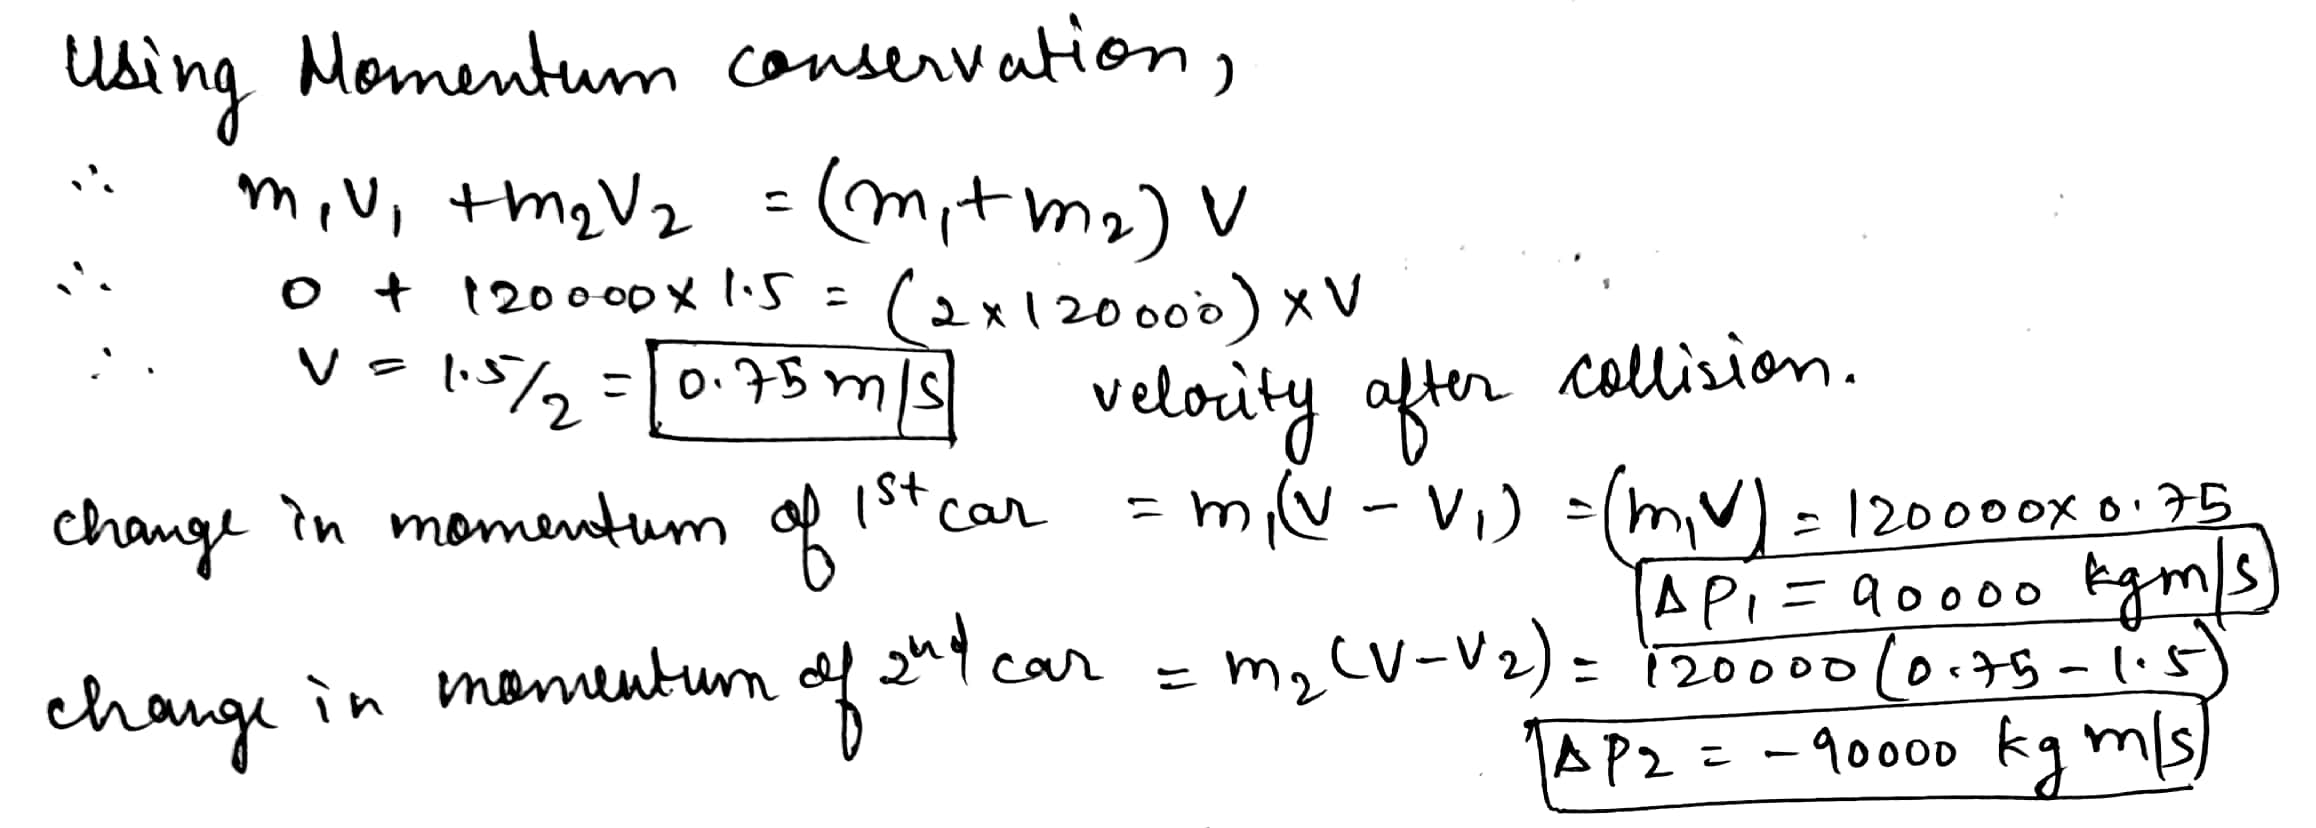 Using Momentum conservation,
∴ m₁V₁ + m₂V₂ = (m₁ + m₂) V
∴ 0 + 120000 × 1.5 = (2 × 120000) × V
∴ V = 1.5/2 = 0.75 m/s velocity after collision.
change in momentum of 1st car = m₁(V - V₁) = (m₁V) = 120000 × 0.75
ΔP₁ = 90000 kg m/s
change in momentum of 2nd car = m₂ (V - V₂) = 120000 (0.75 - 1.5)
ΔP2 = -90000 kg m/s